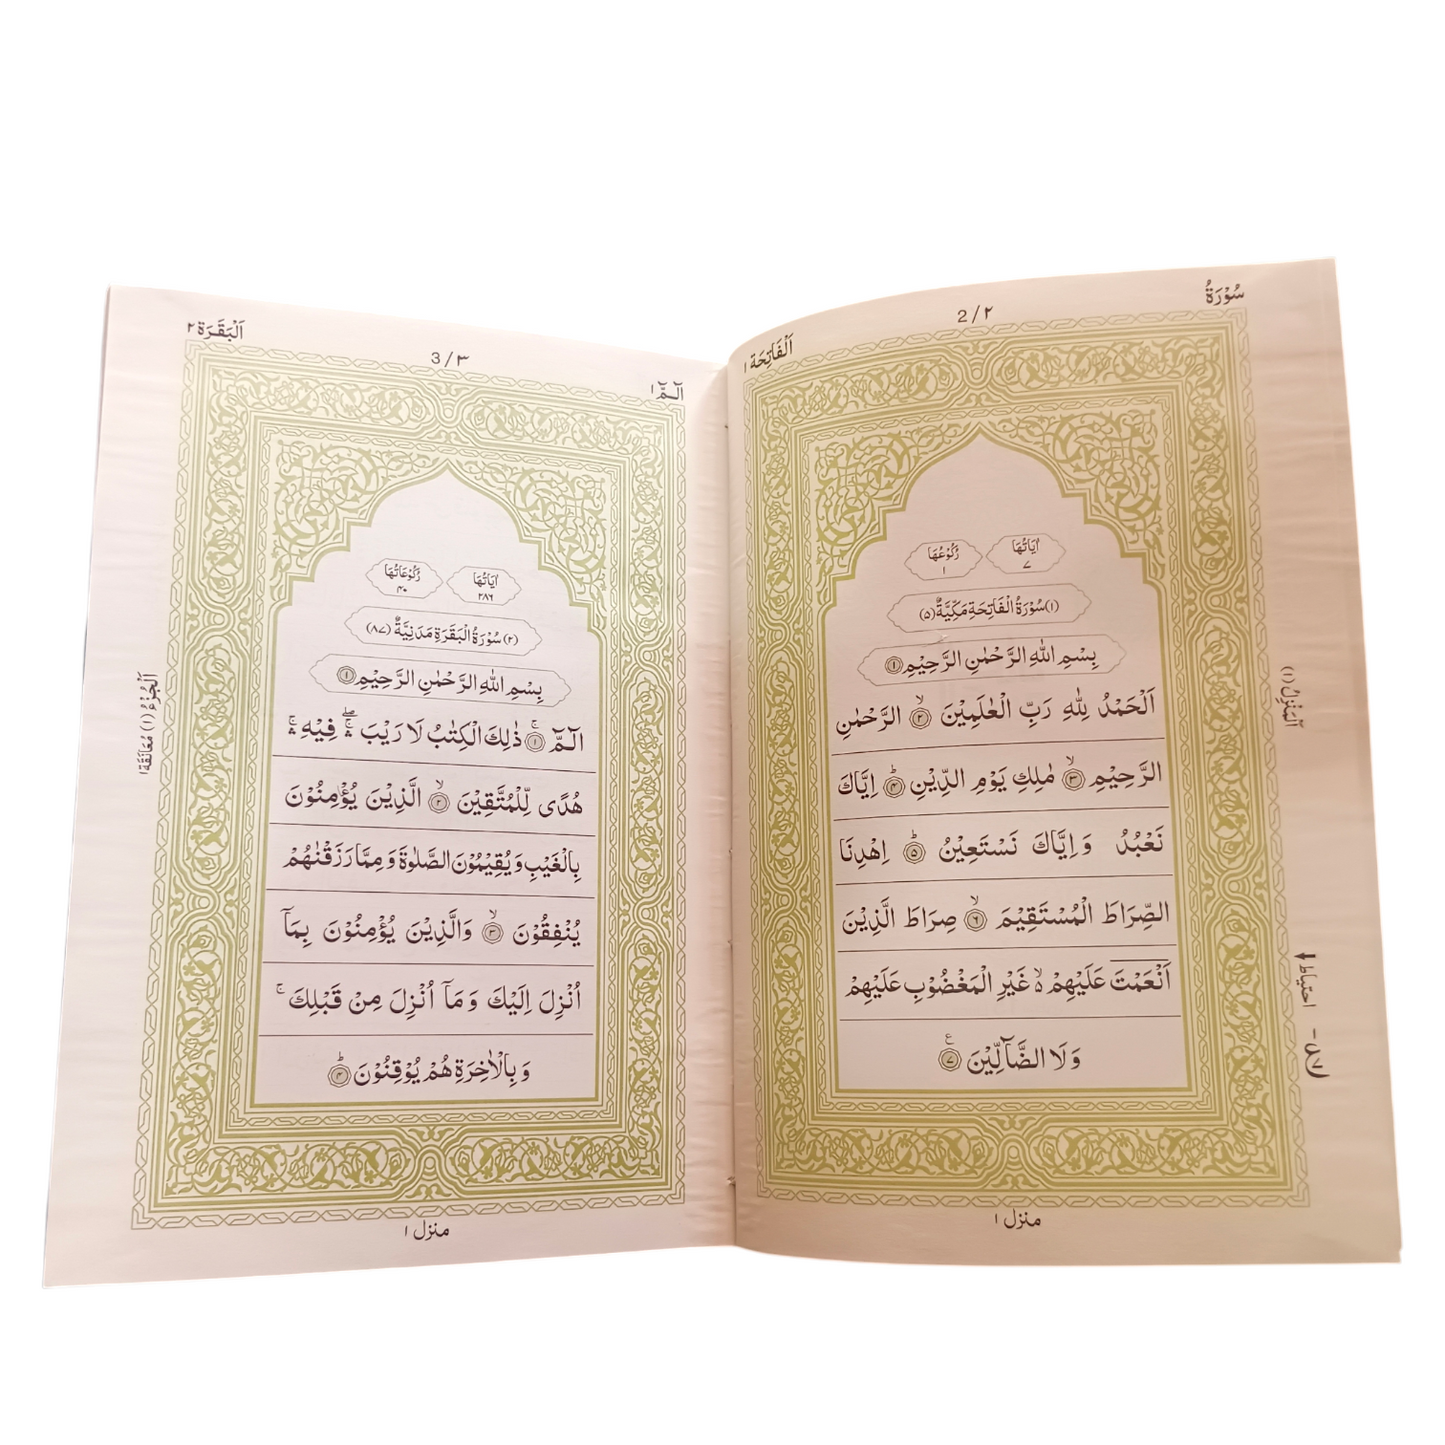 سُوْرَةُ
2/٢
اَلْفَاتِحَة ١
اٰيَاتُهَا ٧
رُكُوْعُهَا ١
(١) سُوْرَةُ الْفَاتِحَةِ مَكِّيَّةٌ (٥)
بِسْمِ اللّٰهِ الرَّحْمٰنِ الرَّحِيْمِ ١
اَلْحَمْدُ لِلّٰهِ رَبِّ الْعٰلَمِيْنَ ۙ ٢ الرَّحْمٰنِ
الرَّحِيْمِ ۙ ٣ مٰلِكِ يَوْمِ الدِّيْنِ ؕ ٤ اِيَّاكَ
نَعْبُدُ وَاِيَّاكَ نَسْتَعِيْنُ ؕ ٥ اِهْدِنَا
الصِّرَاطَ الْمُسْتَقِيْمَ ۙ ٦ صِرَاطَ الَّذِيْنَ
اَنْعَمْتَ عَلَيْهِمْ ۙ۬ غَيْرِ الْمَغْضُوْبِ عَلَيْهِمْ
وَلَا الضَّآلِّيْنَ ٧
اَلْمَنْزِلُ (١)
احتياط
منزل ١
اَلٓمّٓ ١
3/٣
اَلْبَقَرَة ٢
اٰيَاتُهَا ٢٨٦
رُكُوْعَاتُهَا ٤٠
(٢) سُوْرَةُ الْبَقَرَةِ مَدَنِيَّةٌ (٨٧)
بِسْمِ اللّٰهِ الرَّحْمٰنِ الرَّحِيْمِ ١
الٓمّٓ ۚ ١ ذٰلِكَ الْكِتٰبُ لَا رَيْبَ ۛۖۚ فِيْهِ ۛۚ
هُدًى لِّلْمُتَّقِيْنَ ۙ ٢ الَّذِيْنَ يُؤْمِنُوْنَ
بِالْغَيْبِ وَيُقِيْمُوْنَ الصَّلٰوةَ وَمِمَّا رَزَقْنٰهُمْ
يُنْفِقُوْنَ ۙ ٣ وَالَّذِيْنَ يُؤْمِنُوْنَ بِمَآ
اُنْزِلَ اِلَيْكَ وَمَآ اُنْزِلَ مِنْ قَبْلِكَ ۚ
وَبِالْاٰخِرَةِ هُمْ يُوْقِنُوْنَ ؕ ٤
اَلْجُزْءُ (١) مُعَانَقَة ١
منزل ١